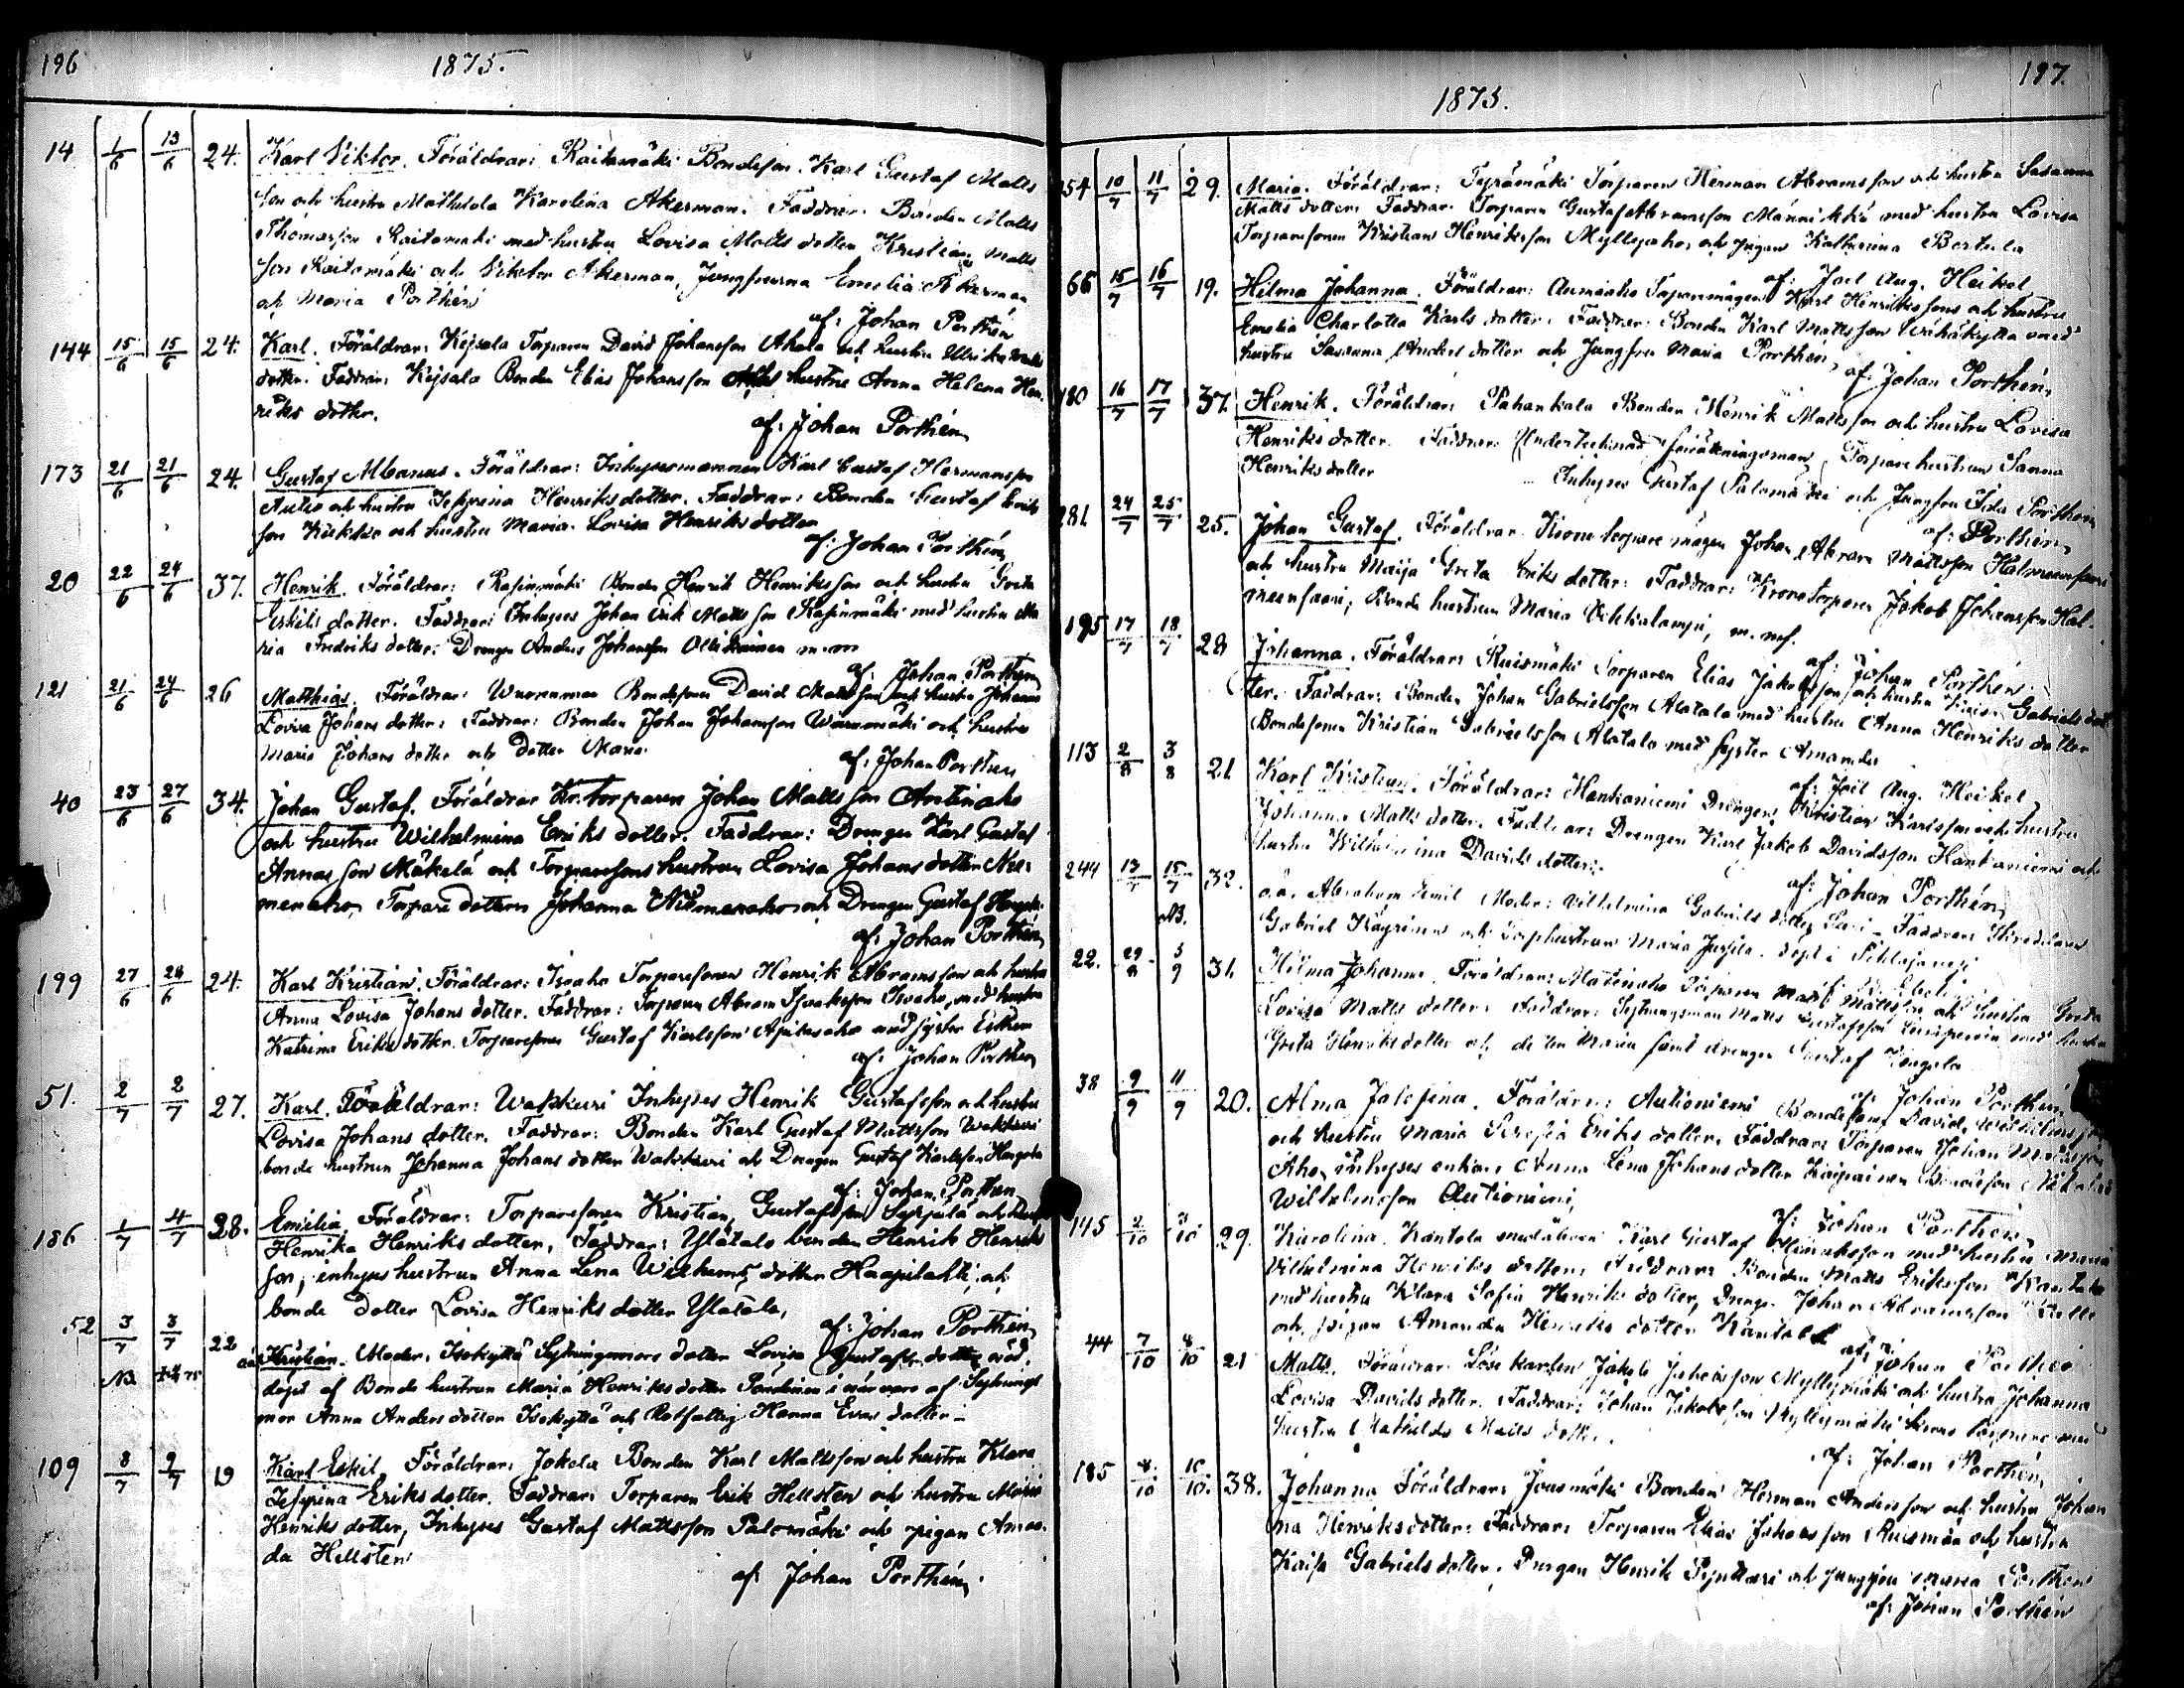 196
1875.
14 1/6 13/6 24. Karl Viktor. Föräldrar: Raitamäki Bondeson Karl Gustaf Matts
son och hustru Mathilda Karolina Åkerman. Faddrar: Bonden Matts
Thomasson Raitamäki med hustru Lovisa Matts dotter Kristian Matts
son Raitamäki och Viktor Åkerman, Jungfrurna Emelia Åkerman
och Maria Porthén
af: Johan Porthén
144 15/6 15/6 24. Karl. Föräldrar: Kejsala Torparen David Johansson Ahola och hustru Ulrika
dotter. Faddrar: Kejsala Bonden Elias Johansson hustru Anna Helena Hen-
riks dotter.
af: Johan Porthén
173 21/6 21/6 24. Gustaf Albanus. Föräldrar: Inhysesmannen Karl Gustaf Hermansson
Autio och hustru Josefina Henriksdotter. Faddrar: Bonden Gustaf Eriks
son och hustru Maria Lovisa Henriks dotter
af: Johan Porthén
20 22/6 24/6 37. Henrik. Föräldrar: Rasinmäki Bonden Henrik Henriksson och hustru Greta
Eskils dotter. Faddrar: Inhyses Johan Erik Mattsson Rasinmäki med hustru Ma
ria Fredriks dotter. Drengen Anders Johansson Ollikainen m.m
af: Johan Porthén
121 21/6 24/6 26 Matthias. Föräldrar: Bondesonen David Mattsson och hustru Johanna
Lovisa Johans dotter. Faddrar: Bonden Johan Johansson och hustru
Maria Johans dotter och dotter Maria.
af: Johan Porthén
40 23/6 27/6 34. Johan Gustaf. Föräldrar Kr. torparen Johan Mattsson Antinaho
och hustru Wilhelmina Eriks dotter. Faddrar: Drengen Karl Gustaf
Annasson Mäkelä och Torparesons hustrun Lovisa Johans dotter Nie-
menaho, Torpare dottern Johanna Niemenaho och Drengen Gustaf
af: Johan Porthén
199 27/6 28/6 24. Karl Kristian. Föräldrar: Isoaho Torparesonen Henrik Abramsson och hustru
Anna Lovisa Johans dotter. Faddrar: Torparen Abram Isaksson Isoaho, med hustru
Katrina Eriksdotter. Torparesonen Gustaf Karlsson med syster Esther
af: Johan Porthén
51. 2/7 2/7 27. Karl. Föräldrar: Wakkuri Inhyses Henrik Gustafsson och hustru
Lovisa Johans dotter. Faddrar: Bonden Karl Gustaf Mattsson Wakkuri
bonde hustrun Johanna Johans dotter Wakkuri och Drengen Gustaf Karlsson
af: Johan Porthén
186 1/7 4/7 28. Emilia Föräldrar: Torparesonen Kristian Gustafsson och hustru
Henrika Henriks dotter, Faddrar: Ylätalo bonden Henrik Henriks
son, inhyses hustrun Anna Lena Wilhelms dotter Haapilahti och
bonde dotter Lovisa Henriks dotter Ylätalo,
af: Johan Porthén
52 3/7 3/7 22 Kristian. Moder, Isokyttä Sytningsmans dotter Lovisa Gustafs dotter nöd
NB. döpt af Bonde hustrun Maria Henriks dotter i närvaro af Sytnings
mor Anna Anders dotter Isokyttä och Rotfattig Hanna Evas dotter
109 8/7 9/7 19 Karl Eskil, Föräldrar: Jokela Bonden Karl Mattsson och hustru Klara
Josefina Eriks dotter. Faddrar: Torparen Erik Hellsten och hustru Maria
Henriks dotter, Inhyses Gustaf Mattsson Palomäki och pigan Aman-
da Hellsten
af: Johan Porthén
197.
1875.
54 10/7 11/7 29. Maria. Föräldrar: Torparen Herman Abramsson och hustru Susanna
Matts dotter. Faddrar: Torparen Gustaf Abramsson Männikkö med hustru Lovisa
Torparesonen Kristian Henriksson Myllyaho, och pigan Katharina
af: Joel Aug. Heikel
66 15/7 16/7 19. Hilma Johanna. Föräldrar: Karl Henrikssons och hustru
Emelia Charlotta Karls dotter. Faddrar: Bonden Karl Mattsson Wähäkyttä med
hustru Susanna Anders dotter och Jungfru Maria Porthén,
af: Johan Porthén,
180 16/7 17/7 37. Henrik. Föräldrar: Pahankala Bonden Henrik Mattsson och hustru Lovisa
Henriks dotter. Faddrar: Undertecknad förrättningsman, Torpare hustrun Sanna
Henriks dotter Inhyses Gustaf Palomäki och Jungfru Ida Porthén
af: Porthén,
281 24/7 25/7 25. Johan Gustaf. Föräldrar Krono torpare mågen Johan Abram Mattsson
och hustru Maija Greta Eriks dotter. Faddrar: Kronotorparen Jakob Johansson Hal-
Bonde hustrun Maria m. m.
af: Johan Porthén.
195 17/7 18/7 28 Johanna. Föräldrar: Ruismäki Torparen Elias Jakobsson och hustru Kaisa Gabriels dot
ter. Faddrar: Bonden Johan Gabrielsson Alatalo med hustru Anna Henriks dotter
Bondesonen Kristian Gabrielsson Alatalo med syster Amanda
af: Joel Aug. Heikel
113 2/8 3/8 21. Karl Kristian. Föräldrar: Hankaniemi Drengen Kristian Karlsson och hustru
Johanna Matts dotter. Faddrar: Drengen Karl Jakob Davidsson Hankaniemi och
hustru Wilhelmina Davids dotter.
af: Johan Porthén
244 13/7 15/7 32. o.ä. Abraham Emil Moder: Vilhelmina Gabriels dotter Faddrar:
NB. Gabriel och torphustrun Maria döpt i Pihlajavesi
22. 29/8 5/9 31. Hilma Johanna. Föräldrar: Torparen Matts Mattsson och hustru Greta
Lovisa Matts dotter. Faddrar: Sytningsman Matts Gustafsson med hustru
Greta Henriks dotter och dotter Maria samt drengen Gustaf
af: Johan Porthén
38 9/9 11/9 20. Alma Josefina. Föräldrar: Autioniemi Bondeson David Wilhelmsson
och hustru Maria Serafia Eriks dotter. Faddrar: Torparen Johan Mattsson
Aho, inhyses enkan Anna Lena Johans dotter
Wilhelmsson Autioniemi,
af: Johan Porthén,
145 2/10 3/10 29. Karolina. Kantola Karl Gustaf Henriksson med hustru Maria
Vilhelmina Henriks dotter. Faddrar: Bonden Matts Eriksson Kantola
med hustru Klara Sofia Henriks dotter, Dreng. Johan Abramsson
och pigan Amanda Henriks dotter Kantola
af: Johan Porthén
44 7/10 8/10 21 Matts. Föräldrar: Löse karlen Jakob Jakobsson Myllymäki och hustru Johanna
Lovisa Davids dotter. Faddrar: Johan Jakobsson Myllymäki med
hustru Mathilda Matts dotter.
af: Johan Porthén,
185 8/10 10/10. 38. Johanna Föräldrar: Jousmäki Bonden Herman Andersson och hustru Johan
na Henriksdotter. Faddrar: Torparen Elias Jakobsson Ruismäki och hustru
Kaisa Gabriels dotter, Drengen Henrik och jungfru Maria Porthén
af: Johan Porthén